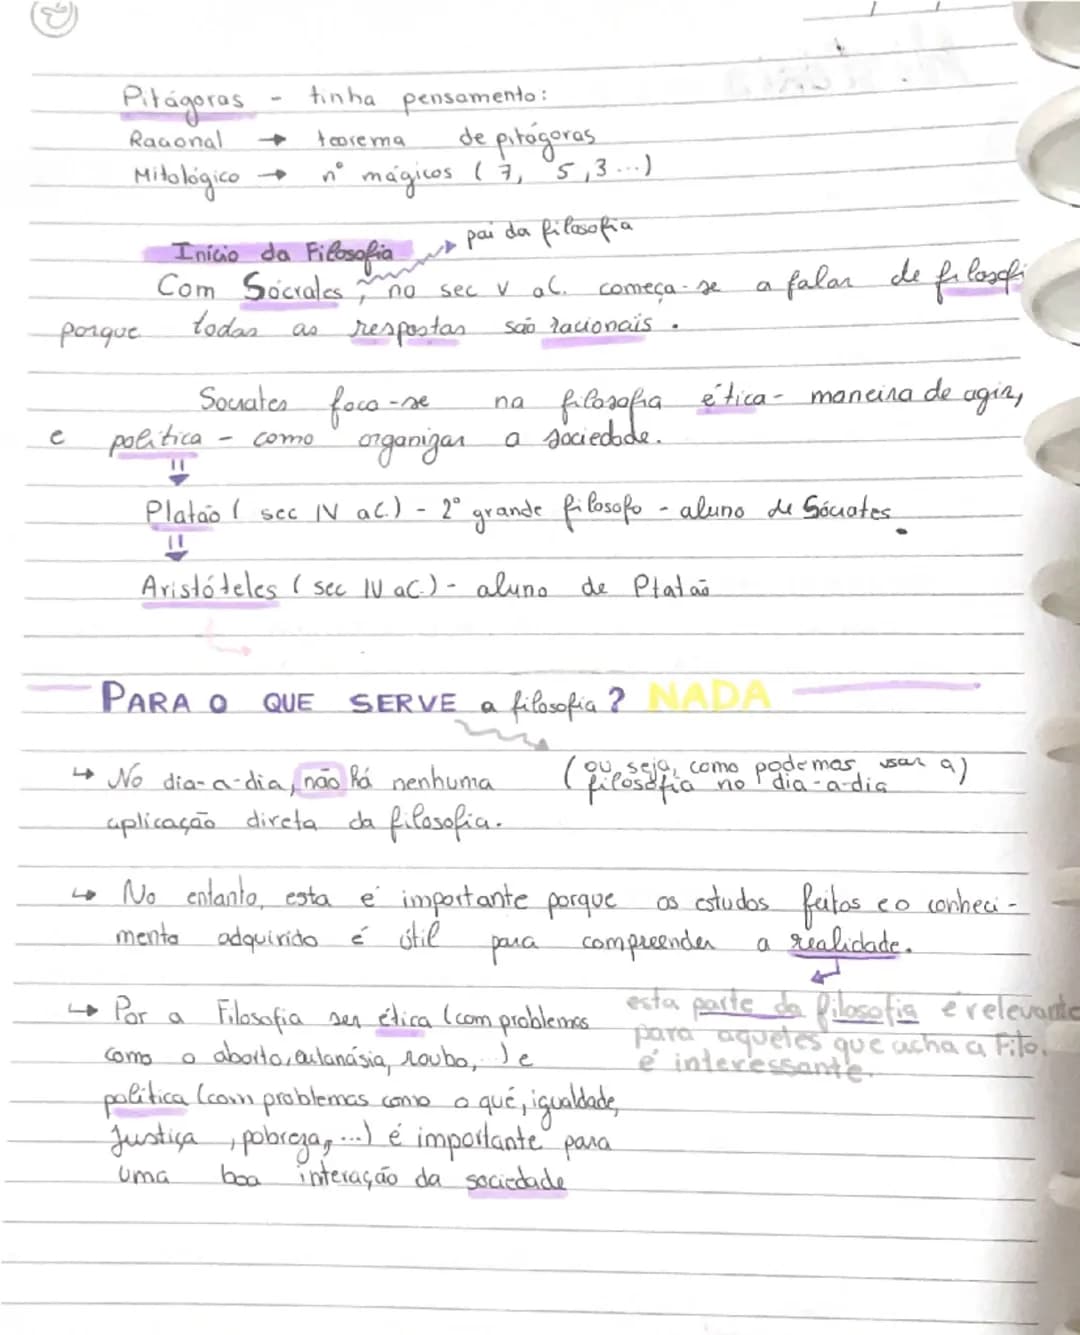 Pitágoras - tinha pensamento:
Racional → teorema de pitágoras
Mitológico → nº mágicos (7, 5, 3...)
Início da Filosofia → pai da filosofia
Com Sócrates, no sec V aC. começa-se a falar de filosofi
porque todas as respostas são racionais.
Socrates foca-se na filosofia ética - maneira de agir,
e política - como organizar a sociedade.
Platão (sec IV aC.) - 2º grande filosofo - aluno de Sócrates.
Aristóteles (sec IV aC.) - aluno de Platão
PARA O QUE SERVE a filosofia? NADA
(ou seja, como podemos usar a)
filosofia no dia-a-dia
↳ No dia-a-dia, não há nenhuma
aplicação direta da filosofia.
↳ No entanto, esta é importante porque os estudos feitos e o conheci-
mento adquirido é útil para compreender a realidade.
esta parte da filosofia é relevante
para aqueles que acha a Filo.
é interessante.
↳ Por a Filosofia ser ética (com problemas
como o aborto, eutanásia, roubo,...) e
política (com problemas como o quê, igualdade,
Justiça, pobreza, ...) é importante para
uma boa interação da sociedade